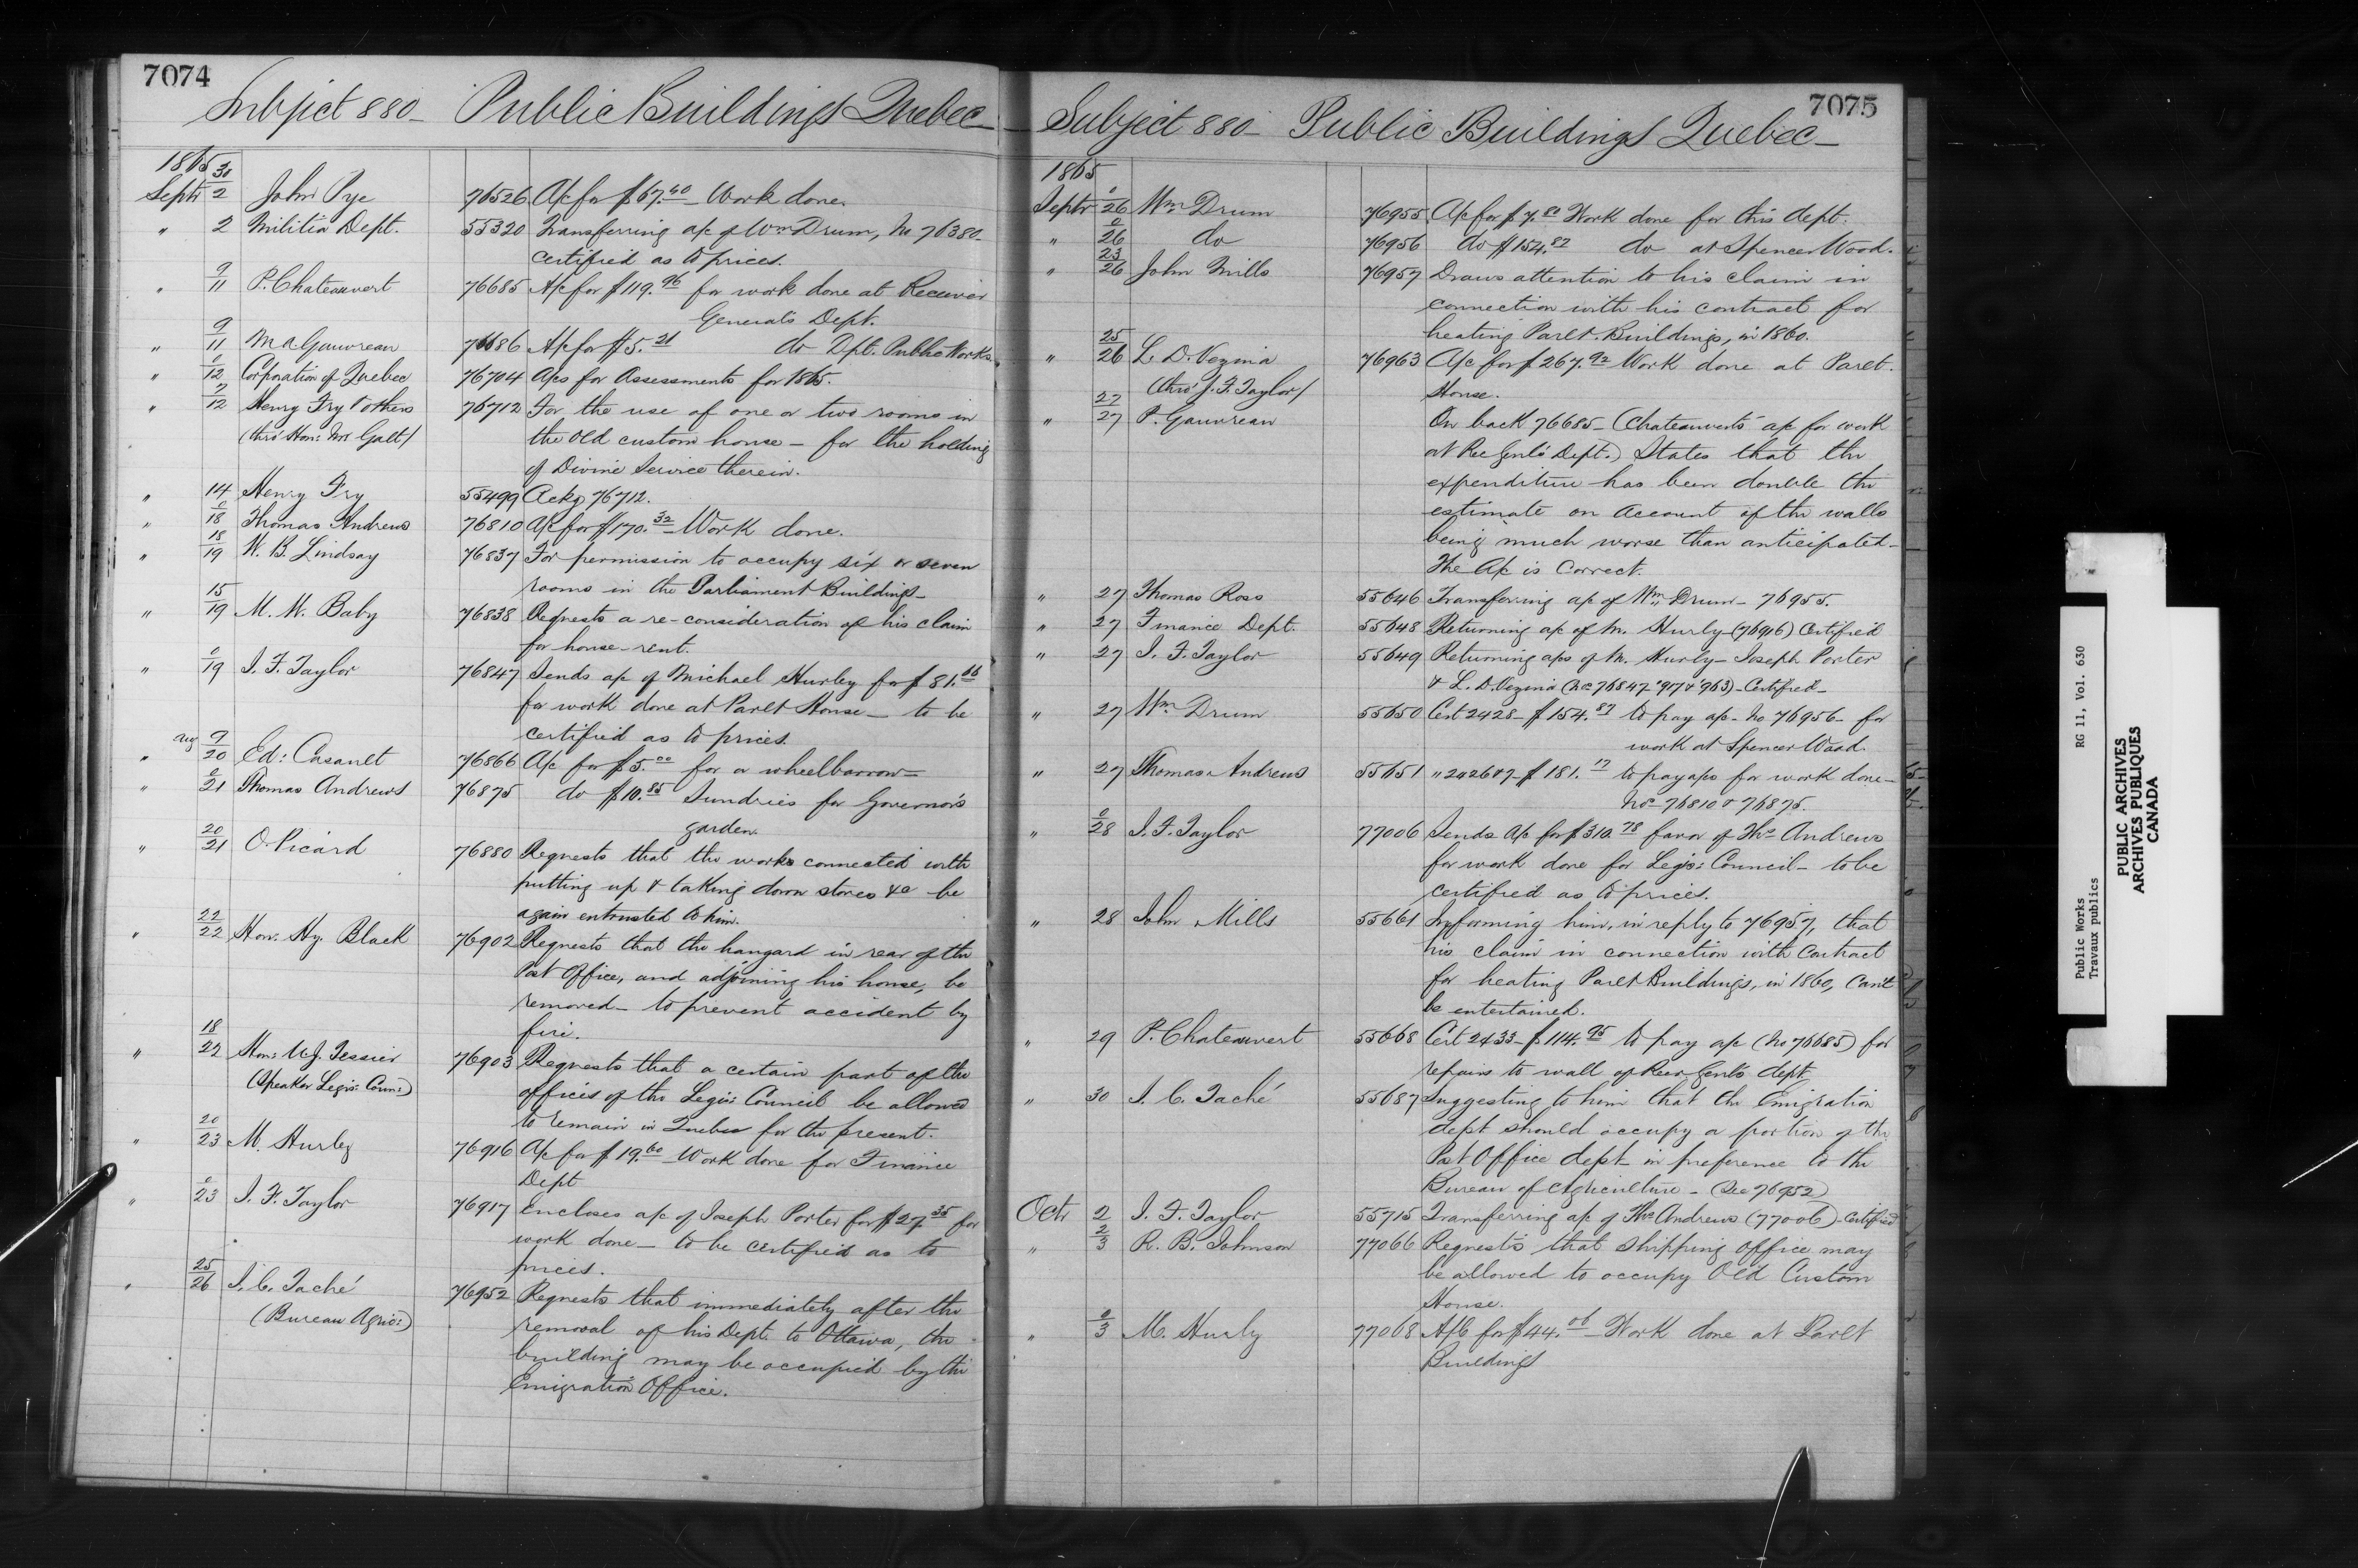 7074
Subject 880 - Public Buildings Quebec -
1865 30
Septr 2 John Pye 76526 A/c for $67.40 Work done.
" 2 Militia Dept. 55320 Transferring a/c of Wm Drum, No 76380
certified as to prices.
" 9/11 P. Chateauvert 76685 A/c for $119.96 for work done at Receiver
General's Dept.
" 9/11 M A Gauvreau 76686 A/c for $5.21 do Dpt. Public Works
" 0/12 Corporation of Quebec 76704 A/cs for Assessments for 1865.
" 7/12 Henry Fry & others 76712 For the use of one or two rooms in
(thro' Hon: Mr Galt) the old custom house - for the holding
of Divine Service therein.
" 14 Henry Fry 55499 Ackg 76712.
" 0/18 Thomas Andrews 76810 A/c for $170.32 Work done.
" 18/19 W. B. Lindsay 76837 For permission to occupy six or seven
rooms in the Parliament Buildings -
" 15/19 M. W. Baby 76838 Requests a re-consideration of his claim
for house-rent.
" 0/19 J. F. Taylor 76847 Sends a/c of Michael Hurley for $81.66
for work done at Parlt House - to be
certified as to prices.
" Aug 9/20 Ed: Casault 76866 A/c for $5.00 for a wheelbarrow -
" 0/21 Thomas Andrews 76875 do $10.85 Sundries for Governor's
garden.
" 20/21 O. Picard 76880 Requests that the works connected with
putting up & taking down stoves &c be
again entrusted to him.
" 22/22 Hon: Hy. Black 76902 Requests that the hangard in rear of the
Post Office, and adjoining his house, be
removed - to prevent accident by
fire.
" 18/22 Hon: U. J. Tessier 76903 Requests that a certain part of the
(Speaker Legis: Coun:) offices of the Legis: Council be allowed
to remain in Quebec for the present.
" 20/23 M. Hurley 76916 A/c for $19.60 Work done for Finance
Dept
" 0/23 J. F. Taylor 76917 Encloses a/c of Joseph Porter for $27.35 for
work done - to be certified as to
prices.
" 25/26 J. C. Taché 76952 Requests that immediately after the
(Bureau Agric:) removal of his Dept. to Ottawa, the
building may be occupied by the
Emigration Office.
7075
Subject 880 - Public Buildings Quebec -
1865
Septr 0/26 Wm Drum 76955 A/c for $7.80 Work done for this dept.
" 0/26 do 76956 do $154.87 do at Spencer Wood.
" 23/26 John Mills 76957 Draws attention to his claim in
connection with his contract for
heating Parlt. Buildings, in 1860.
" 25/26 L. D. Vezina 76963 A/c for $267.92 Work done at Parlt.
(thro' J. F. Taylor) House.
" 27/27 P. Gauvreau On back 76685 - (Chateauvert's a/c for work
at Rec Genl's Dept.) States that the
expenditure has been double the
estimate on account of the walls
being much worse than anticipated -
The A/c is correct.
" 27 Thomas Ross 55646 Transferring a/c of Wm Drum - 76955.
" 27 Finance Dept. 55648 Returning a/c of M. Hurly (76916) Certified
" 27 J. F. Taylor 55649 Returning a/cs of M. Hurly - Joseph Porter
& L. D. Vezina (Nos 76847 '917 & '963) - Certified -
" 27 Wm Drum 55650 Cert 2428 - $154.87 to pay a/c - No 76956 - for
work at Spencer Wood.
" 27 Thomas Andrews 55651 " 2426 & 7 - $181.17 to pay a/cs for work done -
Nos 76810 & 76875.
" 0/28 J. F. Taylor 77006 Sends A/c for $310.78 favor of Ths Andrews
for work done for Legis: Council - to be
certified as to prices.
" 28 John Mills 55661 Informing him, in reply to 76957, that
his claim in connection with contract
for heating Parlt Buildings, in 1860, can't
be entertained.
" 29 P. Chateauvert 55668 Cert 2433 - $114.95 to pay a/c (No 76685) for
repairs to wall of Recr Genl's dept
" 30 J. C. Taché 55687 Suggesting to him that the Emigration
dept should occupy a portion of the
Post Office dept in preference to the
Bureau of Agriculture - (See 76952)
Octr 2 J. F. Taylor 55715 Transferring a/c of Ths Andrews (77006) - Certified
" 2/3 R. B. Johnson 77066 Requests that Shipping office may
be allowed to occupy Old Custom
House.
" 0/3 M. Hurly 77068 A/C for $44.06 Work done at Parlt
Buildings
Public Works RG 11, Vol. 630
Travaux publics
PUBLIC ARCHIVES
ARCHIVES PUBLIQUES
CANADA